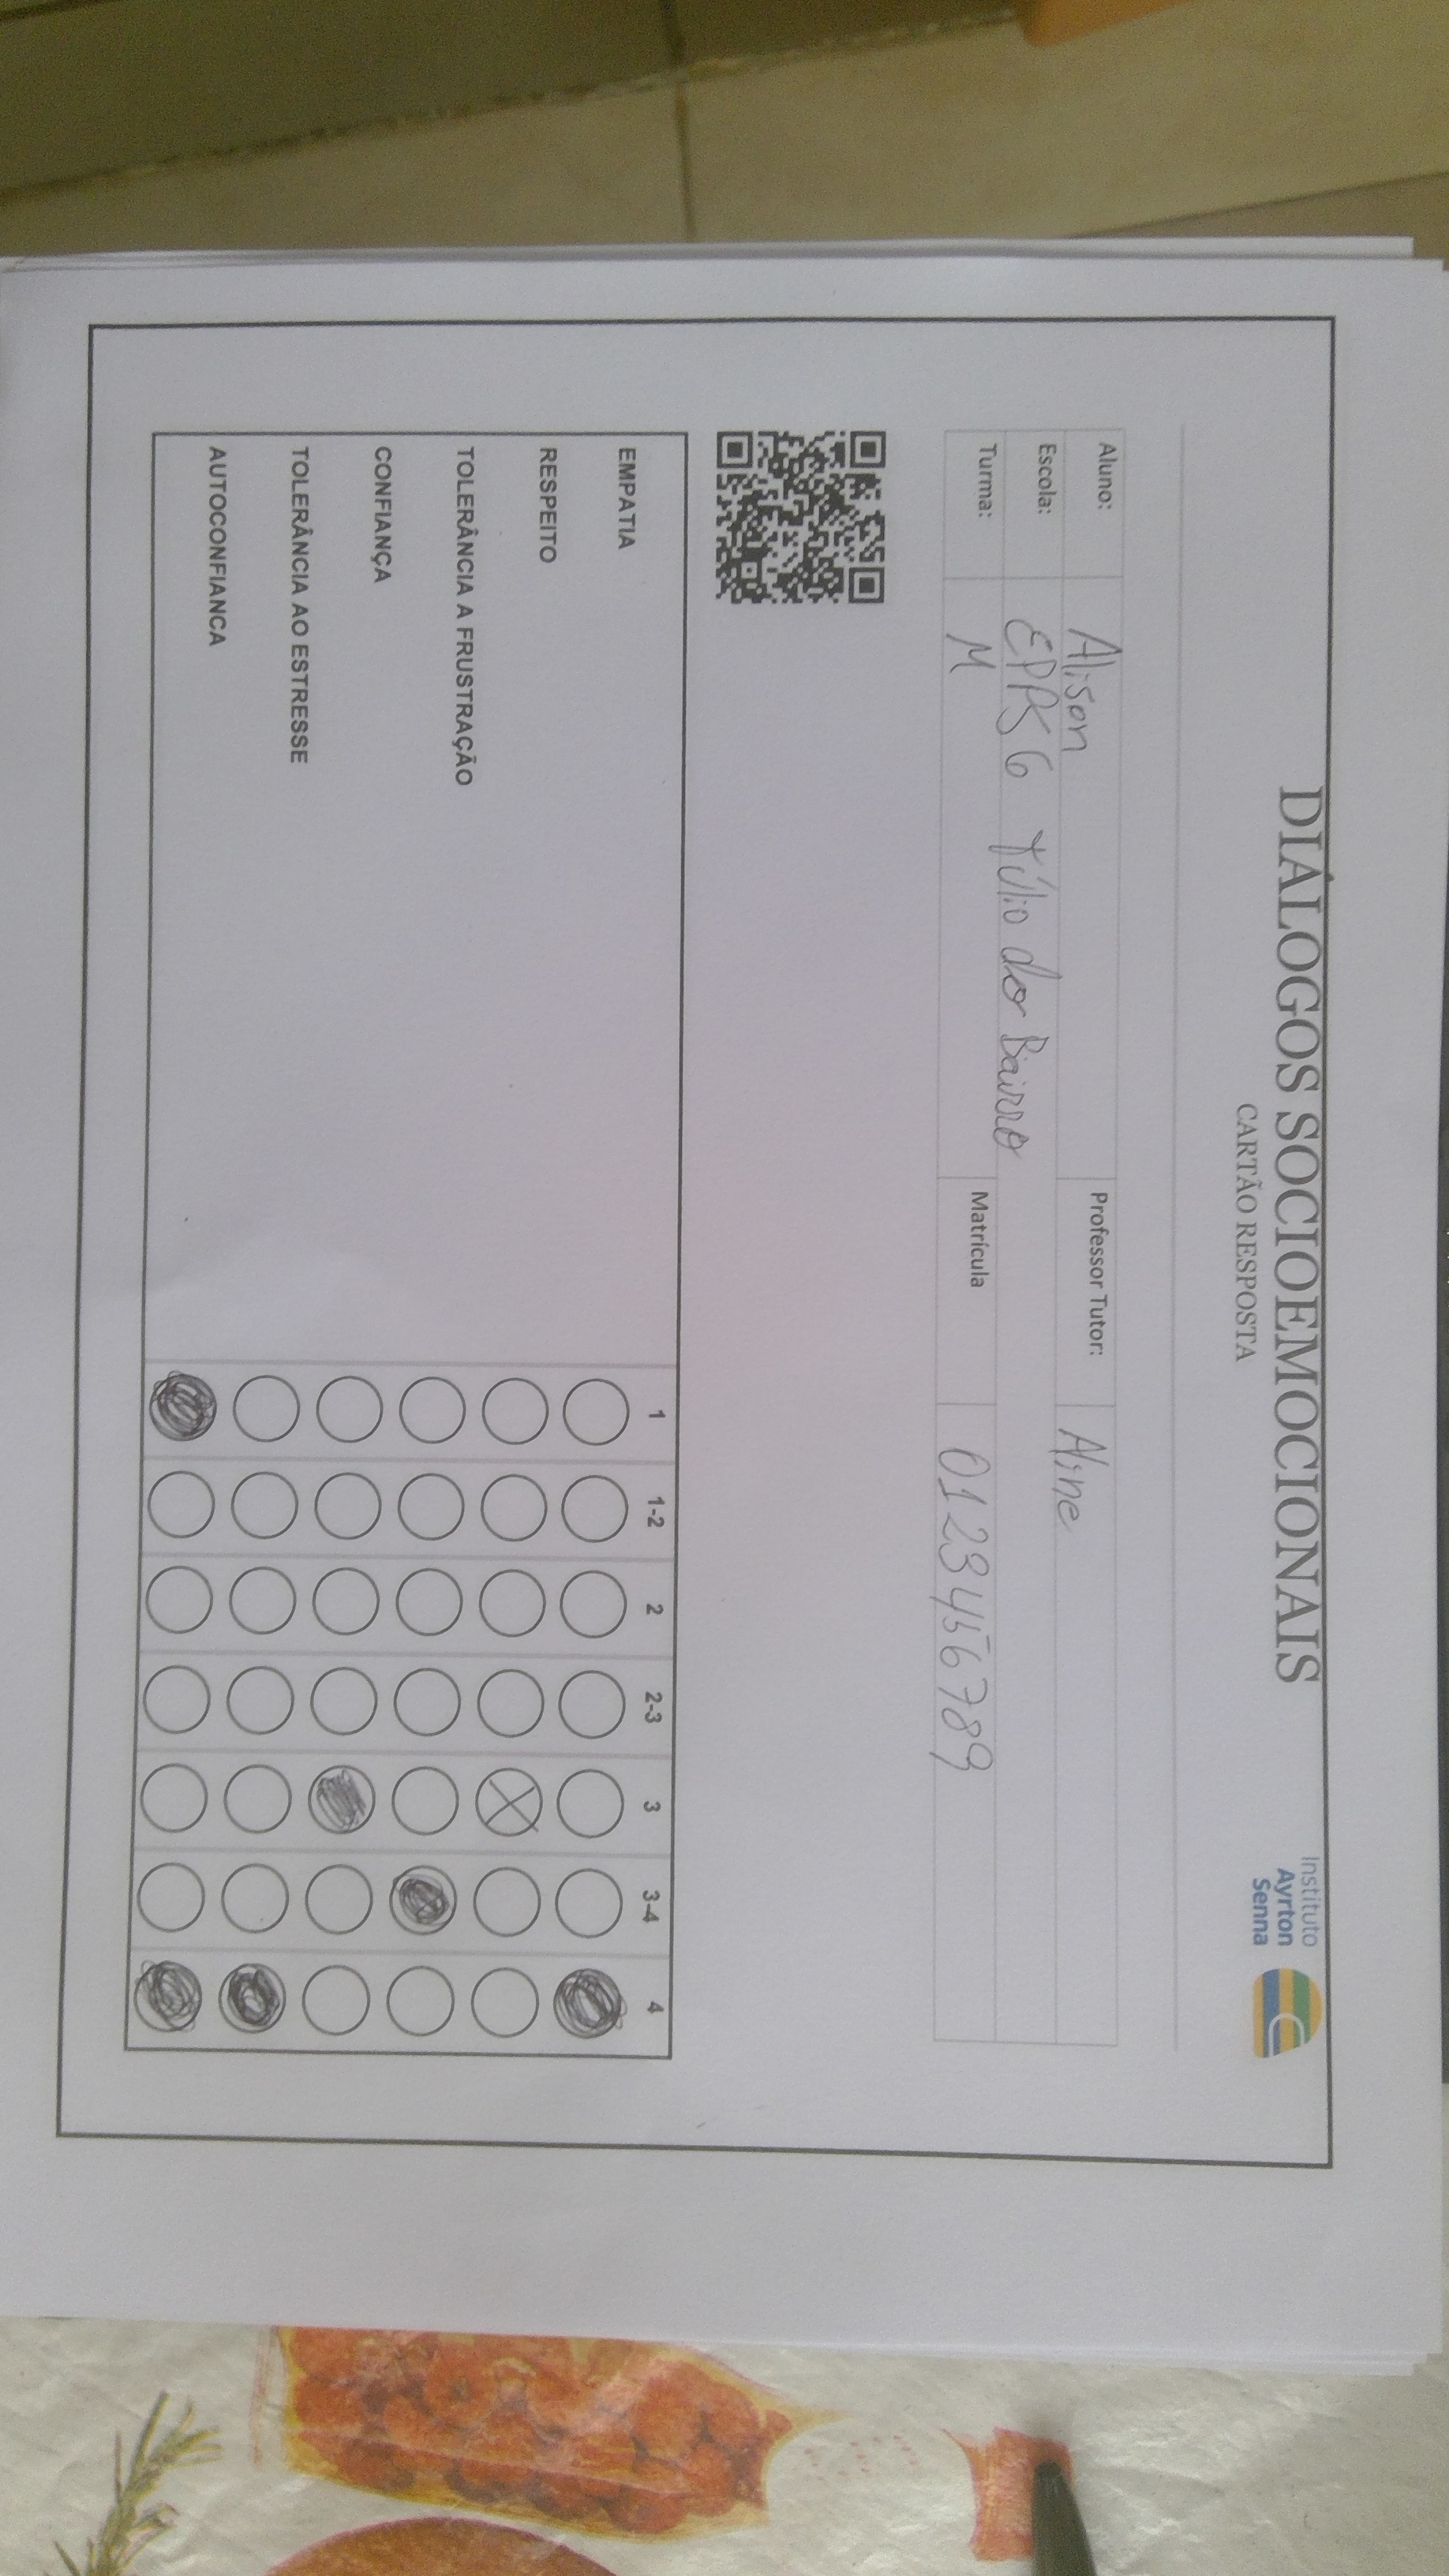 DIÁLOGOS SOCIOEMOCIONAIS
CARTÃO RESPOSTA
Instituto
Ayrton
Senna
Aluno: Alison Professor Tutor: Aline
Escola: Túlio do Bairro
Turma: M Matrícula 0123456789
1 1-2 2 2-3 3 3-4 4
EMPATIA
RESPEITO
TOLERÂNCIA A FRUSTRAÇÃO
CONFIANÇA
TOLERÂNCIA AO ESTRESSE
AUTOCONFIANCA